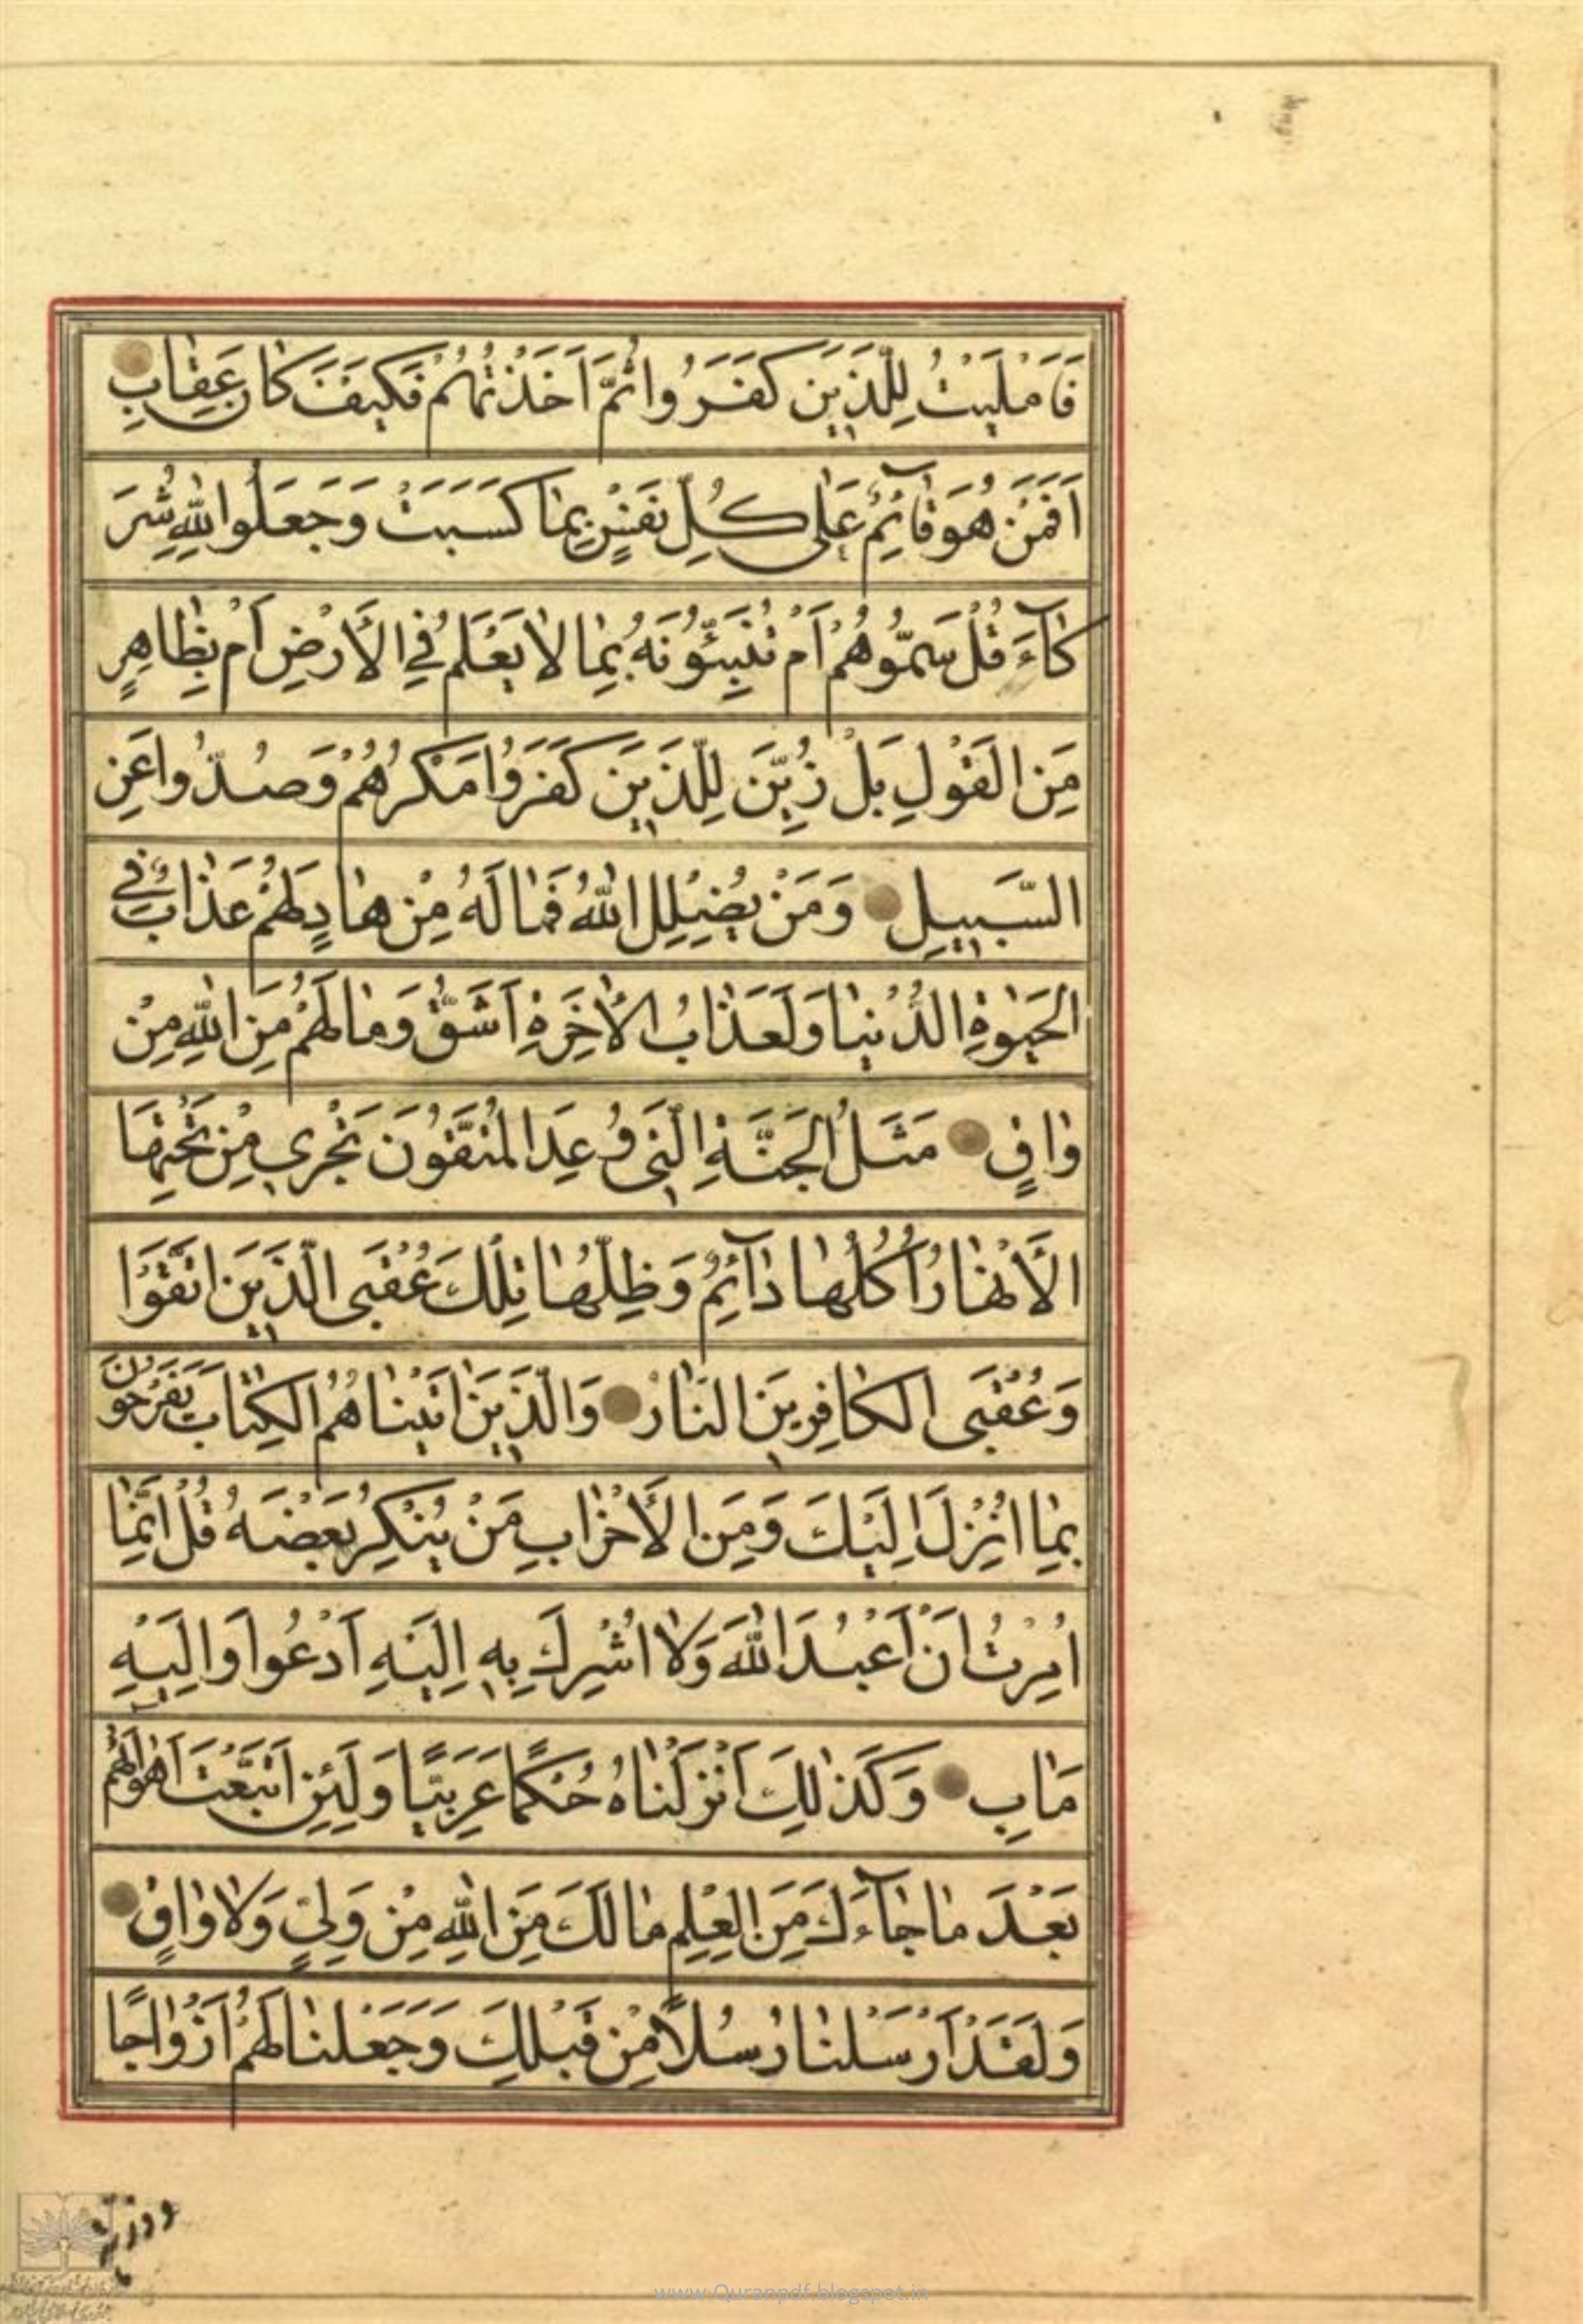 فَاَمْلَيْتُ لِلَّذِينَ كَفَرُوا ثُمَّ اَخَذْتُهُمْ فَكَيْفَ كَانَ عِقٰابِ
اَفَمَنْ هُوَ قٰآئِمٌ عَلٰى كُلِّ نَفْسٍ بِمٰا كَسَبَتْ وَجَعَلُوا لِلّٰهِ شُرَ
كٰآءَ قُلْ سَمُّوهُمْ اَمْ تُنَبِّئُونَهُ بِمٰا لاٰ يَعْلَمُ فِي الْاَرْضِ اَمْ بِظٰاهِرٍ
مِنَ الْقَوْلِ بَلْ زُيِّنَ لِلَّذِينَ كَفَرُوا مَكْرُهُمْ وَصُدُّوا عَنِ
السَّبِيلِ وَمَنْ يُضْلِلِ اللّٰهُ فَمٰا لَهُ مِنْ هٰادٍ لَهُمْ عَذٰابٌ فِي
الْحَيٰوةِ الدُّنْيٰا وَلَعَذٰابُ الْاٰخِرَةِ اَشَقُّ وَمٰا لَهُمْ مِنَ اللّٰهِ مِنْ
وٰاقٍ مَثَلُ الْجَنَّةِ الَّتِي وُعِدَ الْمُتَّقُونَ تَجْرِي مِنْ تَحْتِهَا
الْاَنْهٰارُ اُكُلُهٰا دٰآئِمٌ وَظِلُّهٰا تِلْكَ عُقْبَى الَّذِينَ اتَّقَوْا
وَعُقْبَى الْكٰافِرِينَ النّٰارُ وَالَّذِينَ اٰتَيْنٰاهُمُ الْكِتٰابَ يَفْرَحُونَ
بِمٰا اُنْزِلَ اِلَيْكَ وَمِنَ الْاَحْزٰابِ مَنْ يُنْكِرُ بَعْضَهُ قُلْ اِنَّمٰا
اُمِرْتُ اَنْ اَعْبُدَ اللّٰهَ وَلاٰ اُشْرِكَ بِهِ اِلَيْهِ اَدْعُوا وَاِلَيْهِ
مَاٰبِ وَكَذٰلِكَ اَنْزَلْنٰاهُ حُكْمًا عَرَبِيًّا وَلَئِنِ اتَّبَعْتَ اَهْوٰائَهُمْ
بَعْدَ مٰا جٰآءَكَ مِنَ الْعِلْمِ مٰا لَكَ مِنَ اللّٰهِ مِنْ وَلِيٍّ وَلاٰ وٰاقٍ
وَلَقَدْ اَرْسَلْنٰا رُسُلًا مِنْ قَبْلِكَ وَجَعَلْنٰا لَهُمْ اَزْوٰاجًا
وذرية
www.Quranpdf.blogspot.in